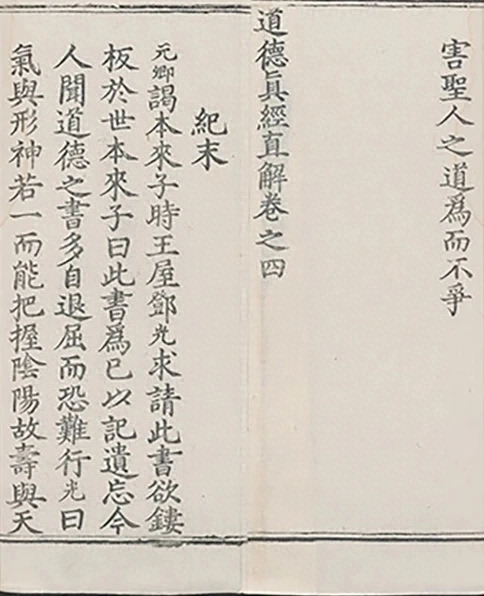 害聖人之道為而不爭
道德真經直解卷之四
紀末
元卿謁本來子時王屋鄧光求請此書欲鏤
板於世本來子曰此書爲已以記遺忘今
人聞道德之書多自退屈而恐難行光曰
氣與形神若一而能把握陰陽故壽與天